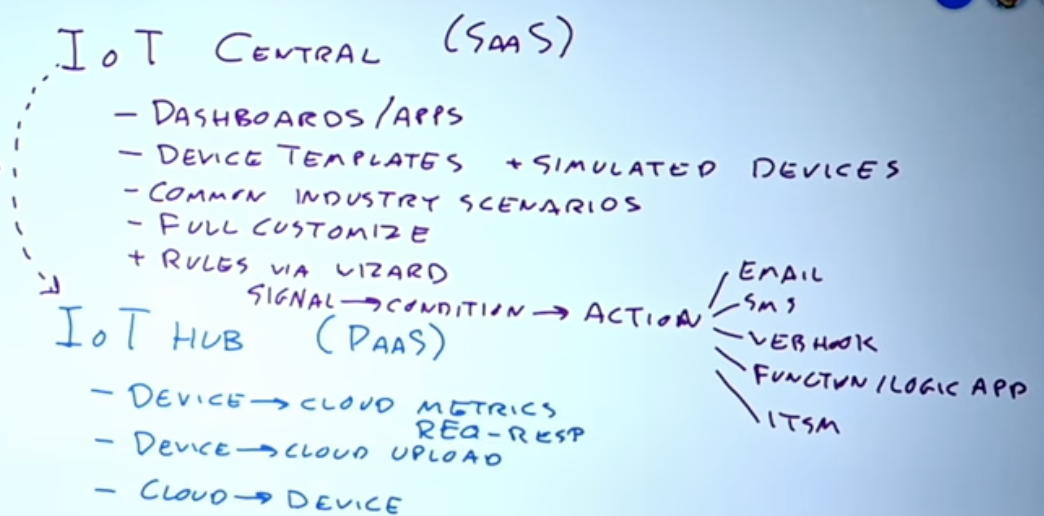 IoT CENTRAL (SAAS)
- DASHBOARDS/APPS
- DEVICE TEMPLATES + SIMULATED DEVICES
- COMMON INDUSTRY SCENARIOS
- FULL CUSTOMIZE
+ RULES VIA WIZARD
SIGNAL → CONDITION → ACTION
EMAIL
SMS
WEBHOOK
FUNCTION/LOGIC APP
ITSM
IoT HUB (PAAS)
- DEVICE → CLOUD METRICS
REQ-RESP
- DEVICE → CLOUD UPLOAD
- CLOUD → DEVICE